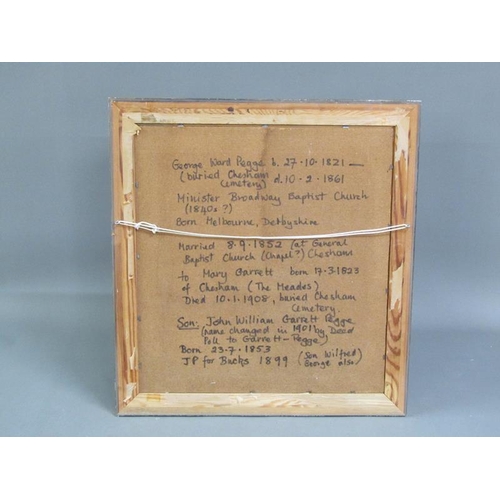 George Ward Pegge b. 27·10·1821 —
(buried Chesham d. 10·2·1861
Cemetery)
Minister Broadway Baptist Church
(1840s?)
Born Melbourne, Derbyshire
Married 8·9·1852 (at General
Baptist Church (Chapel?) Chesham
to Mary Garrett born 17·3·1823
of Chesham (The Meades)
Died 10·1·1908, buried Chesham
Cemetery.
Son: John William Garrett Pegge
(name changed in 1901 by Deed
Poll to Garrett-Pegge)
Born 23·7·1853
JP for Bucks 1899 (Son Wilfred
George also)